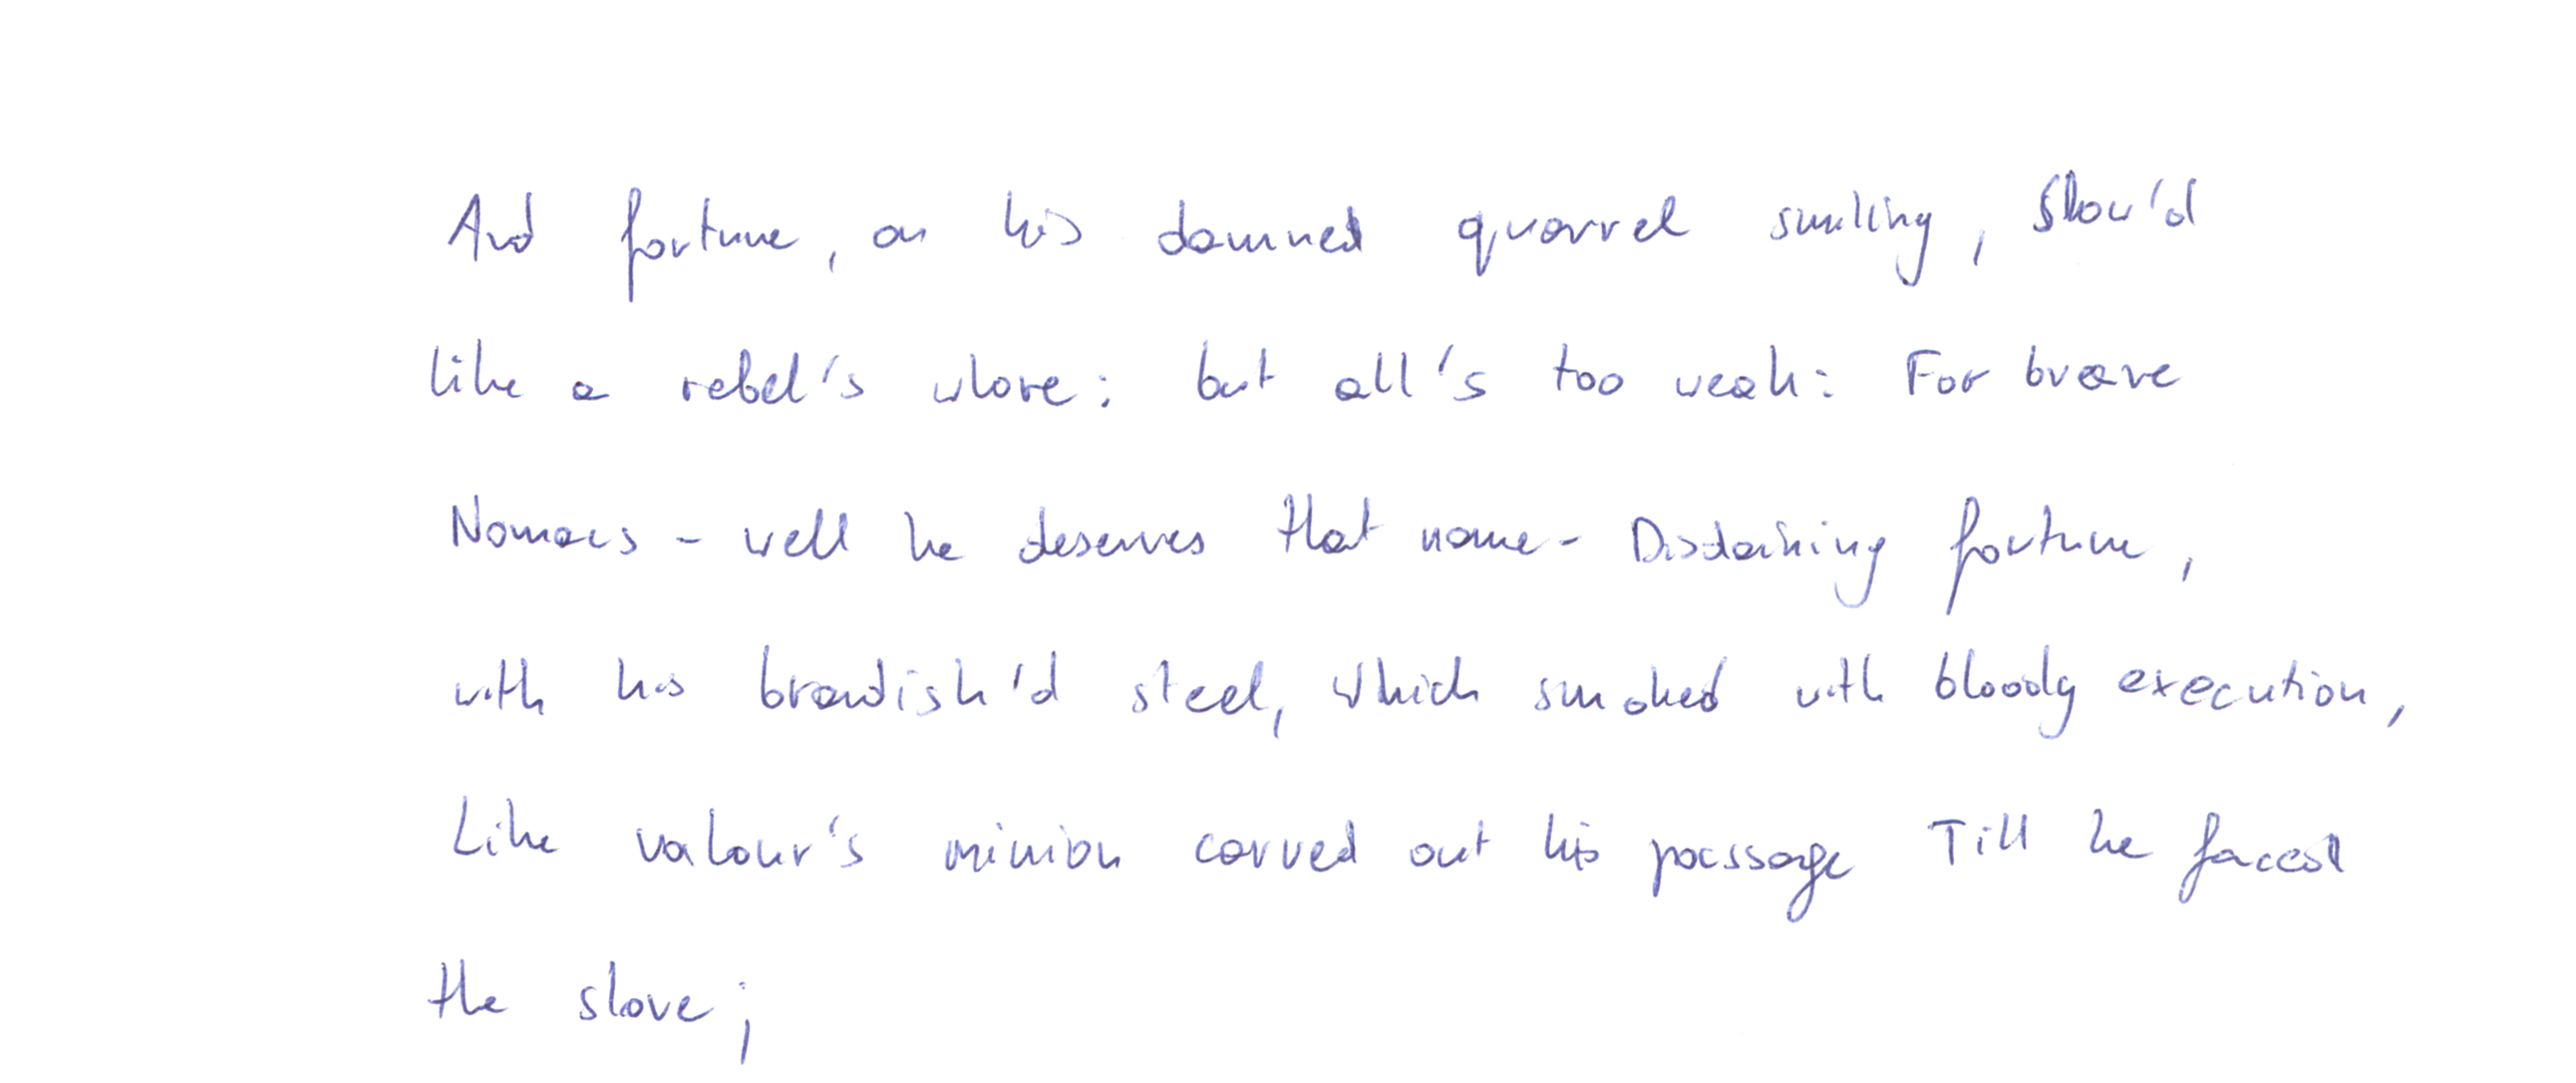 And fortune, on his damned quarrel smiling, Show'd
like a rebel's whore: but all's too weak: For brave
Nomacs - well he deserves that name - Disdaining fortune,
with his brandish'd steel, Which smoked with bloody execution,
Like valour's minion carved out his passage Till he faced
the slave;